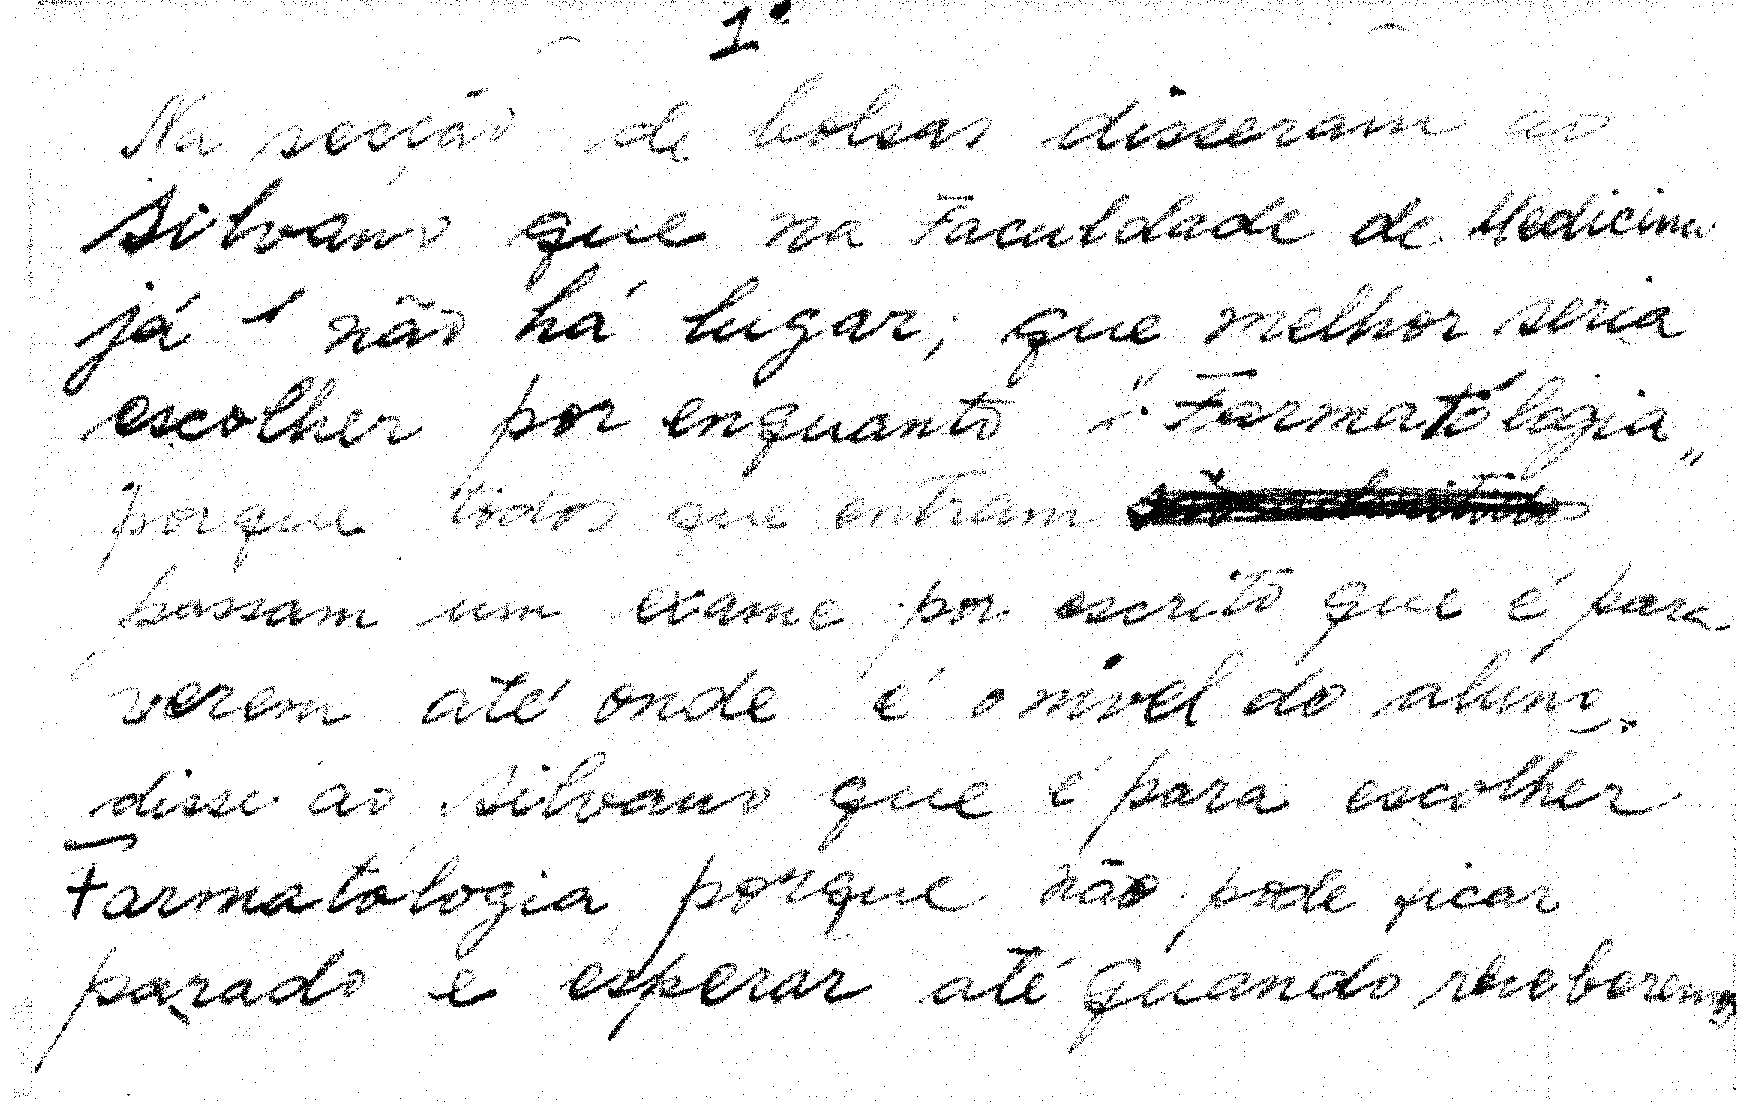 1º
Na secção de bolsas disseram ao
Silvano que na Faculdade de Medicina
já não há lugar, que melhor seria
escolher por enquanto "Farmatólogia"
porque todos que entram
passam um exame por escrito que é para
verem até onde é o nivel do aluno.
disse ao Silvano que é para escolher
Farmatólogia porque não pode ficar
parado e esperar até quando receberem